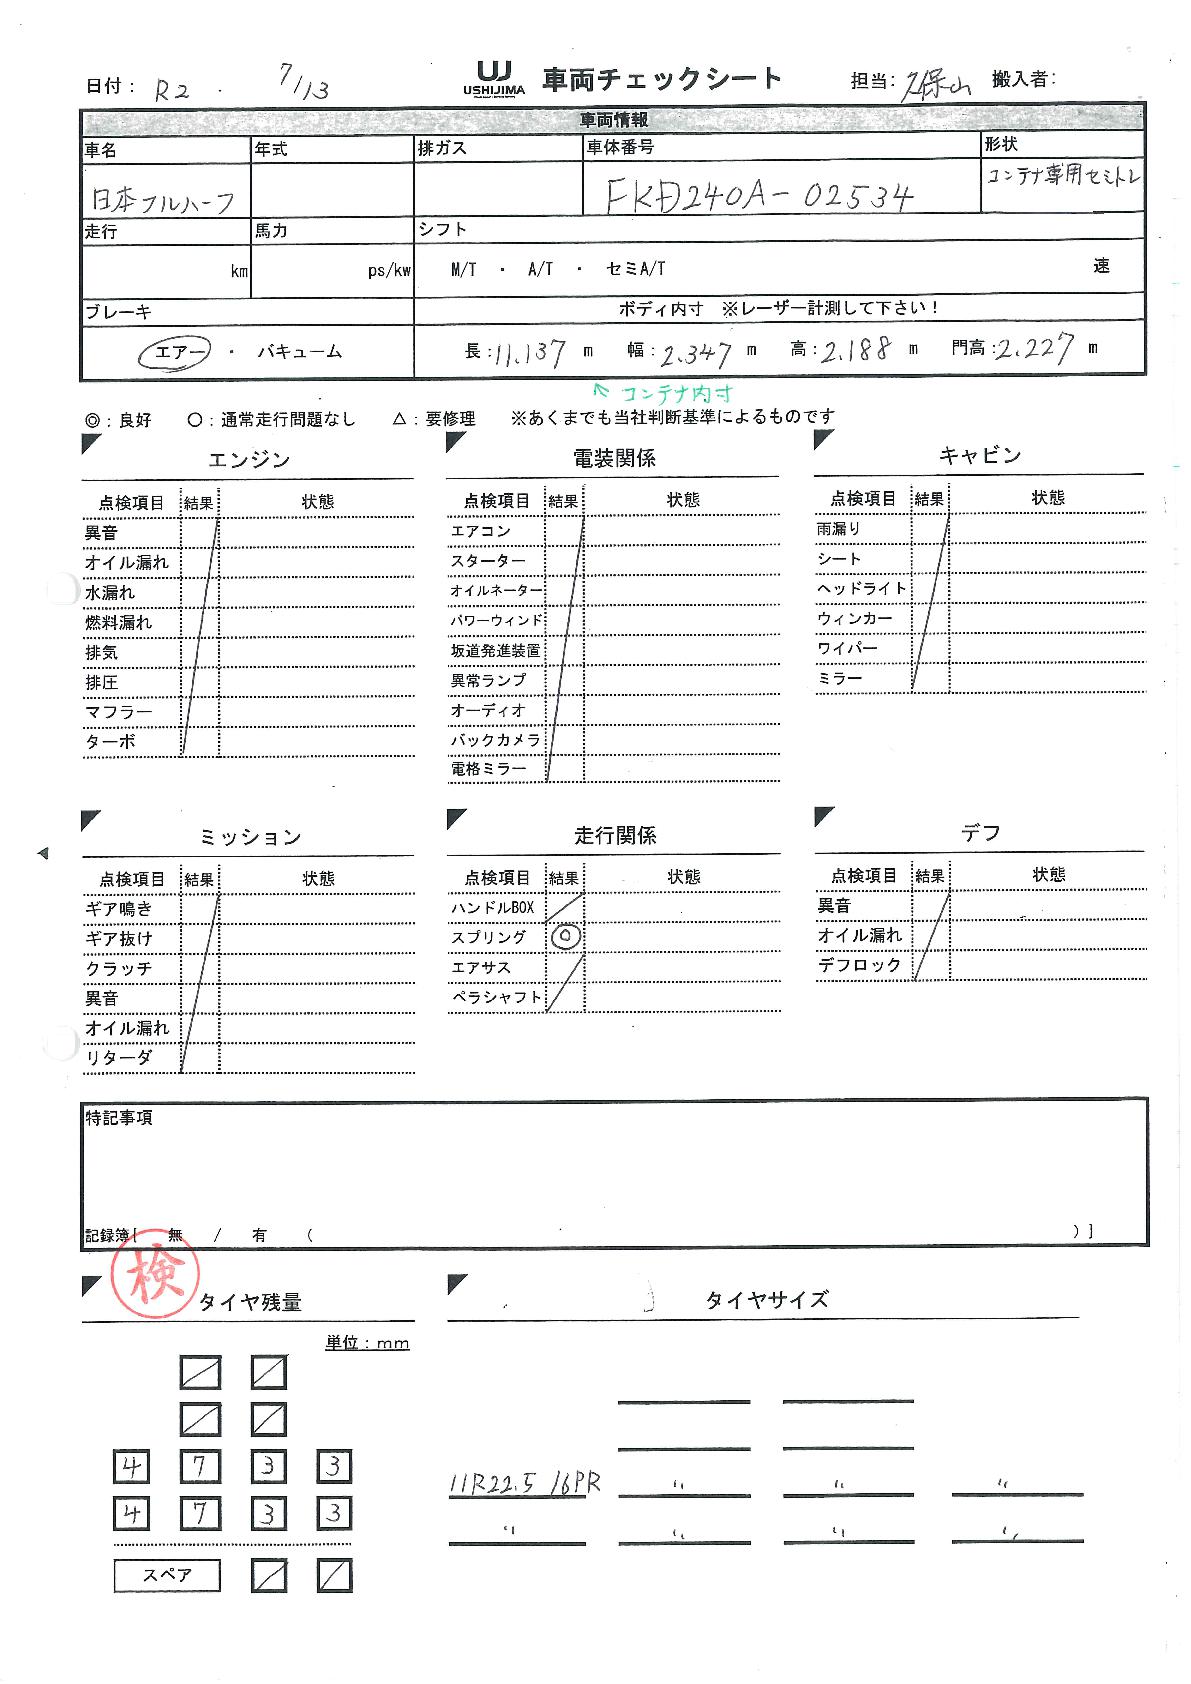 日付： R2 . 7/13 UJ USHIJIMA 車両チェックシート 担当: 久保山 搬入者:
車両情報
車名 年式 排ガス 車体番号 形状
日本フルハーフ FKD240A-02534 コンテナ専用セミトレ
走行 馬力 シフト
km ps/kw M/T ・ A/T ・ セミA/T 速
ブレーキ ボディ内寸 ※レーザー計測して下さい！
エアー ・ バキューム 長:11.137 m 幅:2.347 m 高:2.188 m 門高:2.227 m
↖ コンテナ内寸
◎：良好 ○：通常走行問題なし △：要修理 ※あくまでも当社判断基準によるものです
エンジン
点検項目 結果 状態
異音
オイル漏れ
水漏れ
燃料漏れ
排気
排圧
マフラー
ターボ
電装関係
点検項目 結果 状態
エアコン
スターター
オイルネーター
パワーウィンド
坂道発進装置
異常ランプ
オーディオ
バックカメラ
電格ミラー
キャビン
点検項目 結果 状態
雨漏り
シート
ヘッドライト
ウィンカー
ワイパー
ミラー
ミッション
点検項目 結果 状態
ギア鳴き
ギア抜け
クラッチ
異音
オイル漏れ
リターダ
走行関係
点検項目 結果 状態
ハンドルBOX
スプリング ◎
エアサス
ペラシャフト
デフ
点検項目 結果 状態
異音
オイル漏れ
デフロック
特記事項
記録簿[ 無 / 有 ( )]
検
タイヤ残量
単位：mm
4 7 3 3
4 7 3 3
スペア
タイヤサイズ
11R22.5 16PR 〃 〃 〃
〃 〃 〃 〃